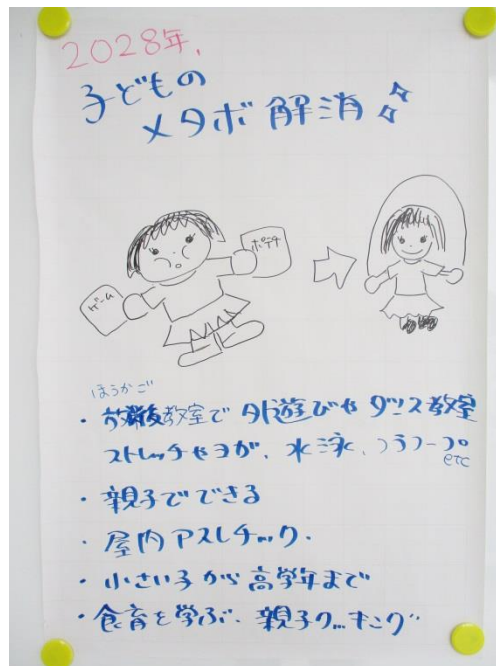 2028年、
子どもの
メタボ解消
ゲーム
ポテチ
ほうかご
・放課後教室で 外遊びや ダンス教室
ストレッチやヨガ、水泳、フラフープ
etc
・親子でできる
・屋内アスレチック.
・小さい子から高学年まで
・食育を学ぶ. 親子クッキング